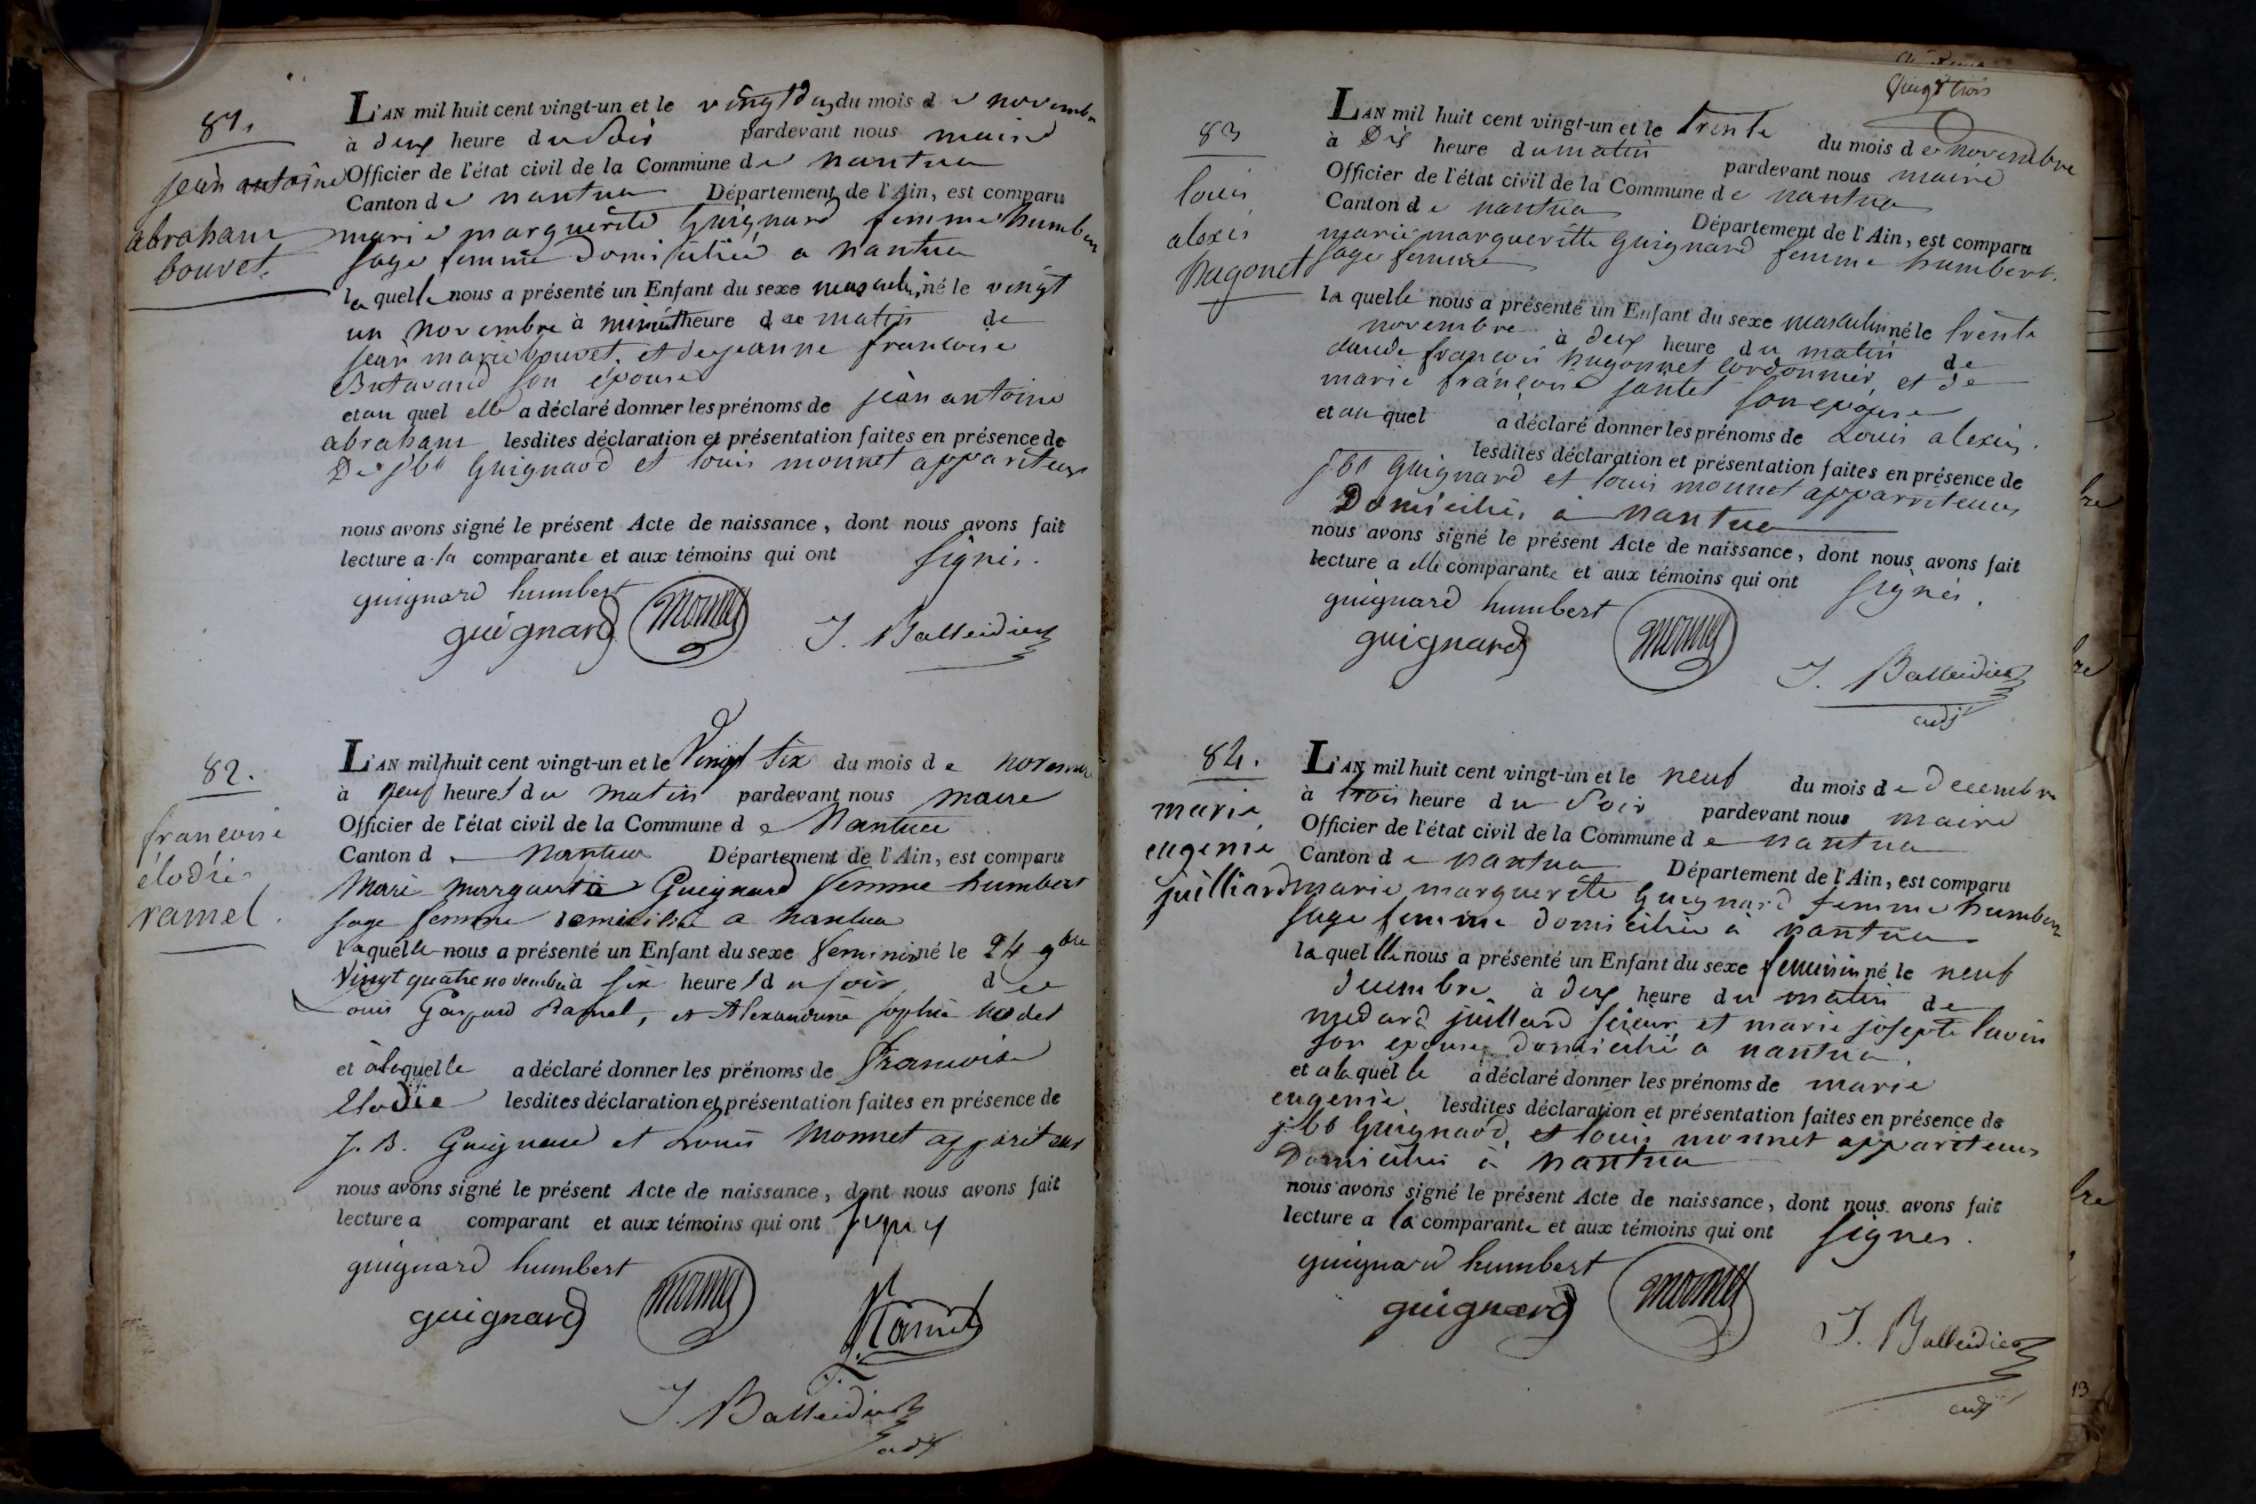 81.
jean antoine
abraham
bouvet.
L'AN mil huit cent vingt-un et le vingt deux du mois de novembre
à deux heure du Soir pardevant nous maire
Officier de l'état civil de la Commune de nantua
Canton de nantua Département de l'Ain, est comparu
marie marguerite Guignard femme humbert
sage femme domiciliée a nantua
la quelle nous a présenté un Enfant du sexe masculin, né le vingt
un novembre à minuit heure du matin de
jean marie bouvet, et de jeanne francoise
Butavand son épouse
et au quel elle a déclaré donner les prénoms de jean antoine
abraham lesdites déclaration et présentation faites en présence de
De jbt Guignard et louis monnet appariteurs
nous avons signé le présent Acte de naissance, dont nous avons fait
lecture a la comparante et aux témoins qui ont signés.
guignard humbert
guignard monnet J. Balleidier
82.
francoise
élodie
ramel.
L'AN mil huit cent vingt-un et le Vingt six du mois de novembre
à neuf heures du matin pardevant nous maire
Officier de l'état civil de la Commune de Nantua
Canton de Nantua Département de l'Ain, est comparu
Marie Marguerite Guignard femme humbert
sage femme domiciliée a nantua
laquelle nous a présenté un Enfant du sexe feminin né le 24 9bre
Vingt quatre novembre à six heures du soir de
Louis Gaspard Ramel, et Alexandrine sophie nodet
et à laquelle a déclaré donner les prénoms de Francoise
Elodie lesdites déclaration et présentation faites en présence de
J. B. Guignard et Louis Monnet appariteurs
nous avons signé le présent Acte de naissance, dont nous avons fait
lecture a comparant et aux témoins qui ont signés
guignard humbert
guignard monnet Ramel
J. Balleidier
adj
Vingt trois
83
louis
alexis
hugonet
L'AN mil huit cent vingt-un et le trente du mois de novembre
à Dix heure du matin pardevant nous maire
Officier de l'état civil de la Commune de nantua
Canton de nantua Département de l'Ain, est comparu
marie margueritte Guignard femme humbert.
sage femme
la quelle nous a présenté un Enfant du sexe masculin né le trente
novembre à deux heure du matin de
claude françois hugonnet cordonnier, et de
marie françoise santet son epouse
et au quel a déclaré donner les prénoms de Louis alexis.
lesdites déclaration et présentation faites en présence de
jbt Guignard et louis monnet appariteurs
Domiciliés à nantua
nous avons signé le présent Acte de naissance, dont nous avons fait
lecture a elle comparante et aux témoins qui ont signés.
guignard humbert
guignard monnet
J. Balleidier
adjt
84.
marie
eugenie
juilliard
L'AN mil huit cent vingt-un et le neuf du mois de decembre
à trois heure du Soir pardevant nous maire
Officier de l'état civil de la Commune de nantua
Canton de nantua Département de l'Ain, est comparu
marie marguerite Guignard femme humbert
sage femme domiciliée à nantua
la quelle nous a présenté un Enfant du sexe feminin né le neuf
decembre à deux heure du matin de
medard juillard scieur et marie josepte
son epouse domicilié a nantua.
et a la quelle a déclaré donner les prénoms de marie
eugenie lesdites déclaration et présentation faites en présence de
jbt Guignard, et louis monnet appariteurs
Domiciliés à nantua
nous avons signé le présent Acte de naissance, dont nous avons fait
lecture a la comparante et aux témoins qui ont signés.
guignard humbert
guignard monnet
J. Balleidier
adjt